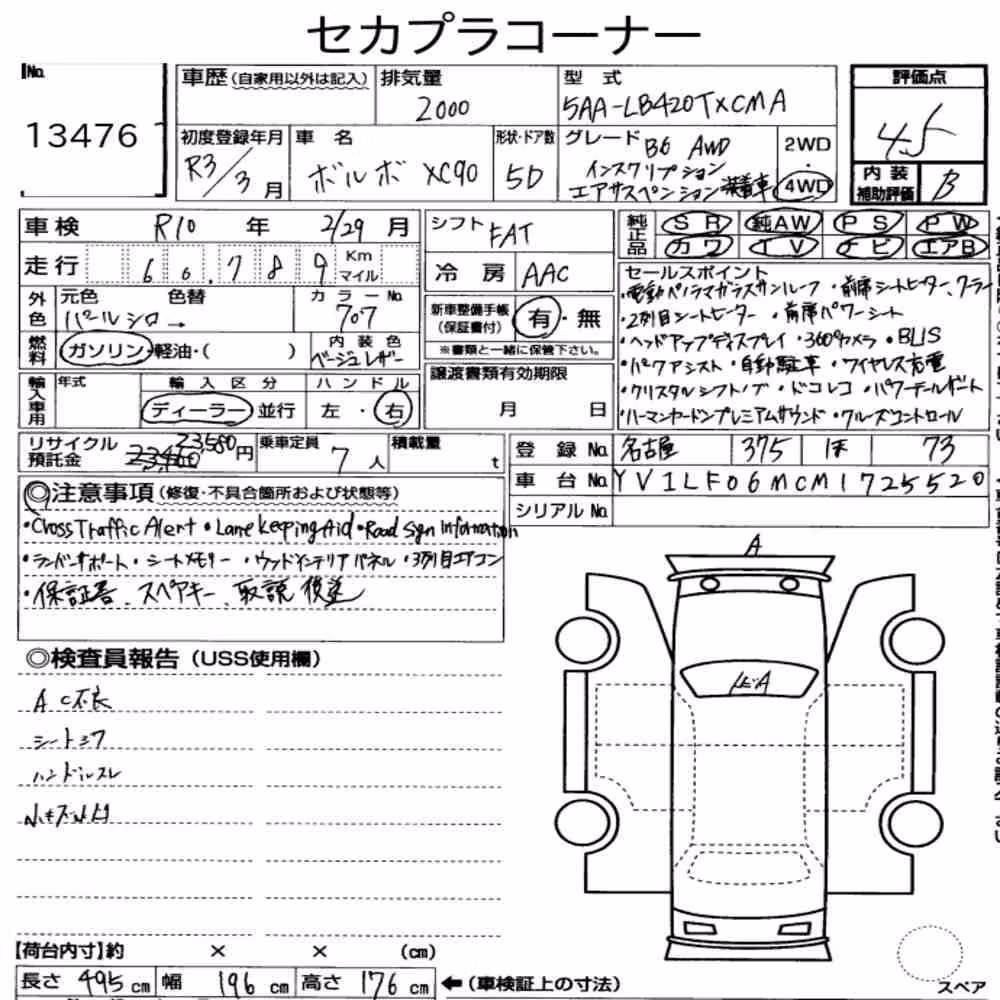 セカプラコーナー
No. 13476
車歴(自家用以外は記入)
排気量 2000
型 式 5AA-LB420TXCMA
評価点 4.5
初度登録年月 R3/3 月
車 名 ボルボ XC90
形状・ドア数 5D
グレード B6 AWD
インスクリプション
エアサスペンション装着車
2WD
・
4WD
内装補助評価 B
車検 R10 年 2/29 月
走行 6 0 , 7 8 9 Km マイル
シフト FAT
冷 房 AAC
純正品 SR 純AW PS PW
カワ TV ナビ エアB
外色 元色 色替 カラーNo.
パールシロ → 707
燃料 ガソリン・軽油・( )
内装色 ベージュレザー
新車整備手帳(保証書付) 有・無
※書類と一緒に保管下さい。
輸入車用 年式 輸入区分 ハンドル
ディーラー 並行 左・右
譲渡書類有効期限
月 日
セールスポイント
・電動パノラマガラスサンルーフ ・前席シートヒーター、クーラー
・2列目シートヒーター ・前席パワーシート
・ヘッドアップディスプレイ ・360°カメラ ・BLIS
・パークアシスト ・自動駐車 ・ワイヤレス充電
・クリスタルシフトノブ ・ドラレコ ・パワーテールゲート
・ハーマンカードンプレミアムサウンド ・クルーズコントロール
リサイクル預託金 23,580円
乗車定員 7 人
積載量 t
登 録 No. 名古屋 375 ほ 73
車 台 No. YV1LF06MCM1725520
シリアル No.
◎注意事項(修復・不具合箇所および状態等)
・Cross Traffic Alert ・Lane Keeping Aid ・Road Sign Information
・ランバーサポート ・シートメモリー ・ウッドインテリアパネル ・3列目エアコン
・保証書、スペアキー、取説 後送
◎検査員報告(USS使用欄)
A C不良
シートシワ
ハンドルスレ
小キズ小凹
A
【荷台内寸】約 × × (cm)
長さ 495 cm 幅 196 cm 高さ 176 cm ←(車検証上の寸法)
スペア